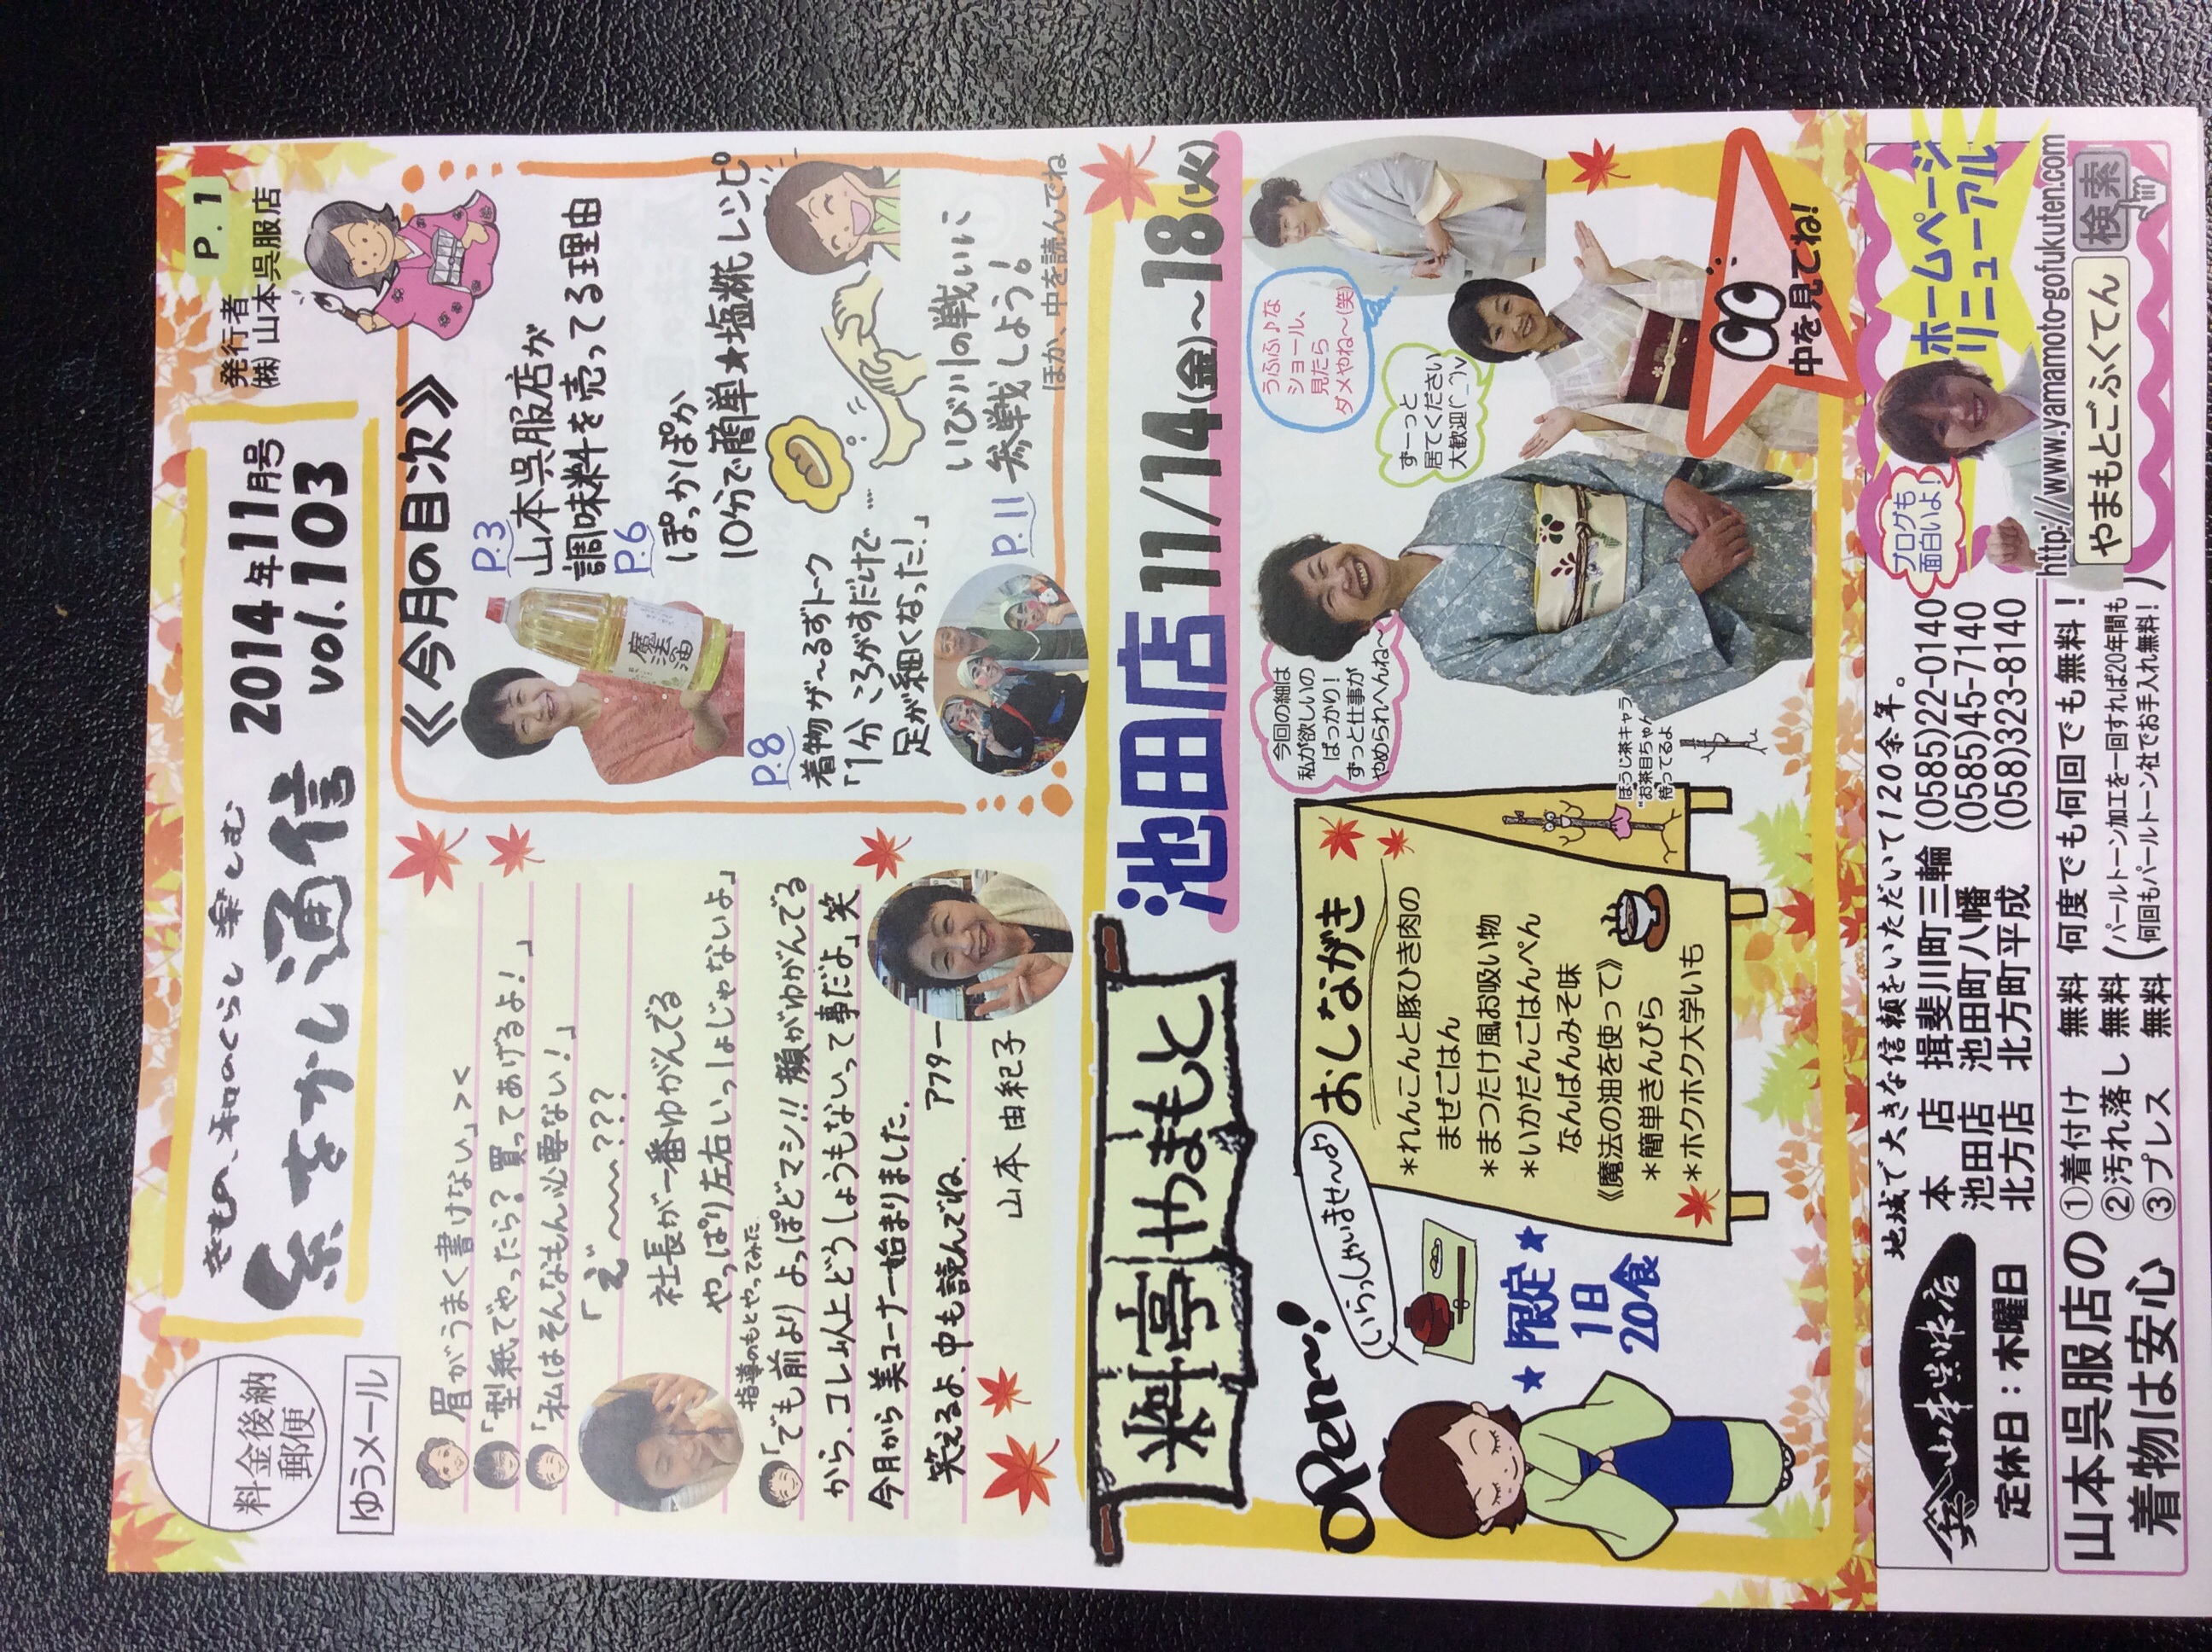 料金後納
郵便
ゆうメール
きもの、和のくらし 楽しむ
糸をかし通信
2014年11月号
vol.103
P.1
発行者
㈱山本呉服店
眉がうまく書けない」><
「型紙でやったら?買ってあげるよ!」
「私はそんなもん必要ない!」
社長が一番ゆがんでる
やっぱり左右いっしょじゃないよ」
指導のもとやってみた。
「でも前よりよっぽどマシ!!顔がゆがんでる
から、コレ以上どうしょうもないって事だよ」笑
今月から美コーナー始まりました。
笑えるよ、中も読んでね。
アフター
山本由紀子
《今月の目次》
P.3
山本呉服店が
調味料を売ってる理由
魔法の油
P.6
ぽっかぽか
10分で簡単★塩糀レシピ
P.8
着物ザ〜るずトーク
「1分ころがすだけで…
足が細くなった!」
P.11
いび川の戦いに
参戦しよう!
ほか、中を読んでね
料亭やまもと
池田店 11/14(金)〜18(火)
open〜!
いらっしゃいませ〜♪
★限定★
1日
20食
おしながき
*れんこんと豚ひき肉の
まぜごはん
*まつたけ風お吸い物
*いかだんごはんぺん
なんばんみそ味
《魔法の油を使って》
*簡単きんぴら
*ホクホク大学いも
ほうじ茶キャラ
"お茶目ちゃん"
待ってるよ
今回の紬は
私が欲しいの
ばっかり!
ずっと仕事が
やめられへんね〜
ずーっと
居てください
大歓迎(^_^)v
うふふ♪な
ショール、
見たら
ダメやね〜(笑)
中を見てね!
地域で大きな信頼をいただいて120余年。
山本呉服店
定休日:木曜日
本店 揖斐川町三輪 (0585)22-0140
池田店 池田町八幡 (0585)45-7140
北方店 北方町平成 (058)323-8140
ブログも
面白いよ!
ホームページ
リニューアル
http://www.yamamoto-gofukuten.com
やまもとごふくてん 検索
山本呉服店の
着物は安心
①着付け 無料 何度でも何回でも無料!
②汚れ落し 無料(パールトーン加工を一回すれば20年間も
③プレス 無料 何回もパールトーン社でお手入れ無料!)